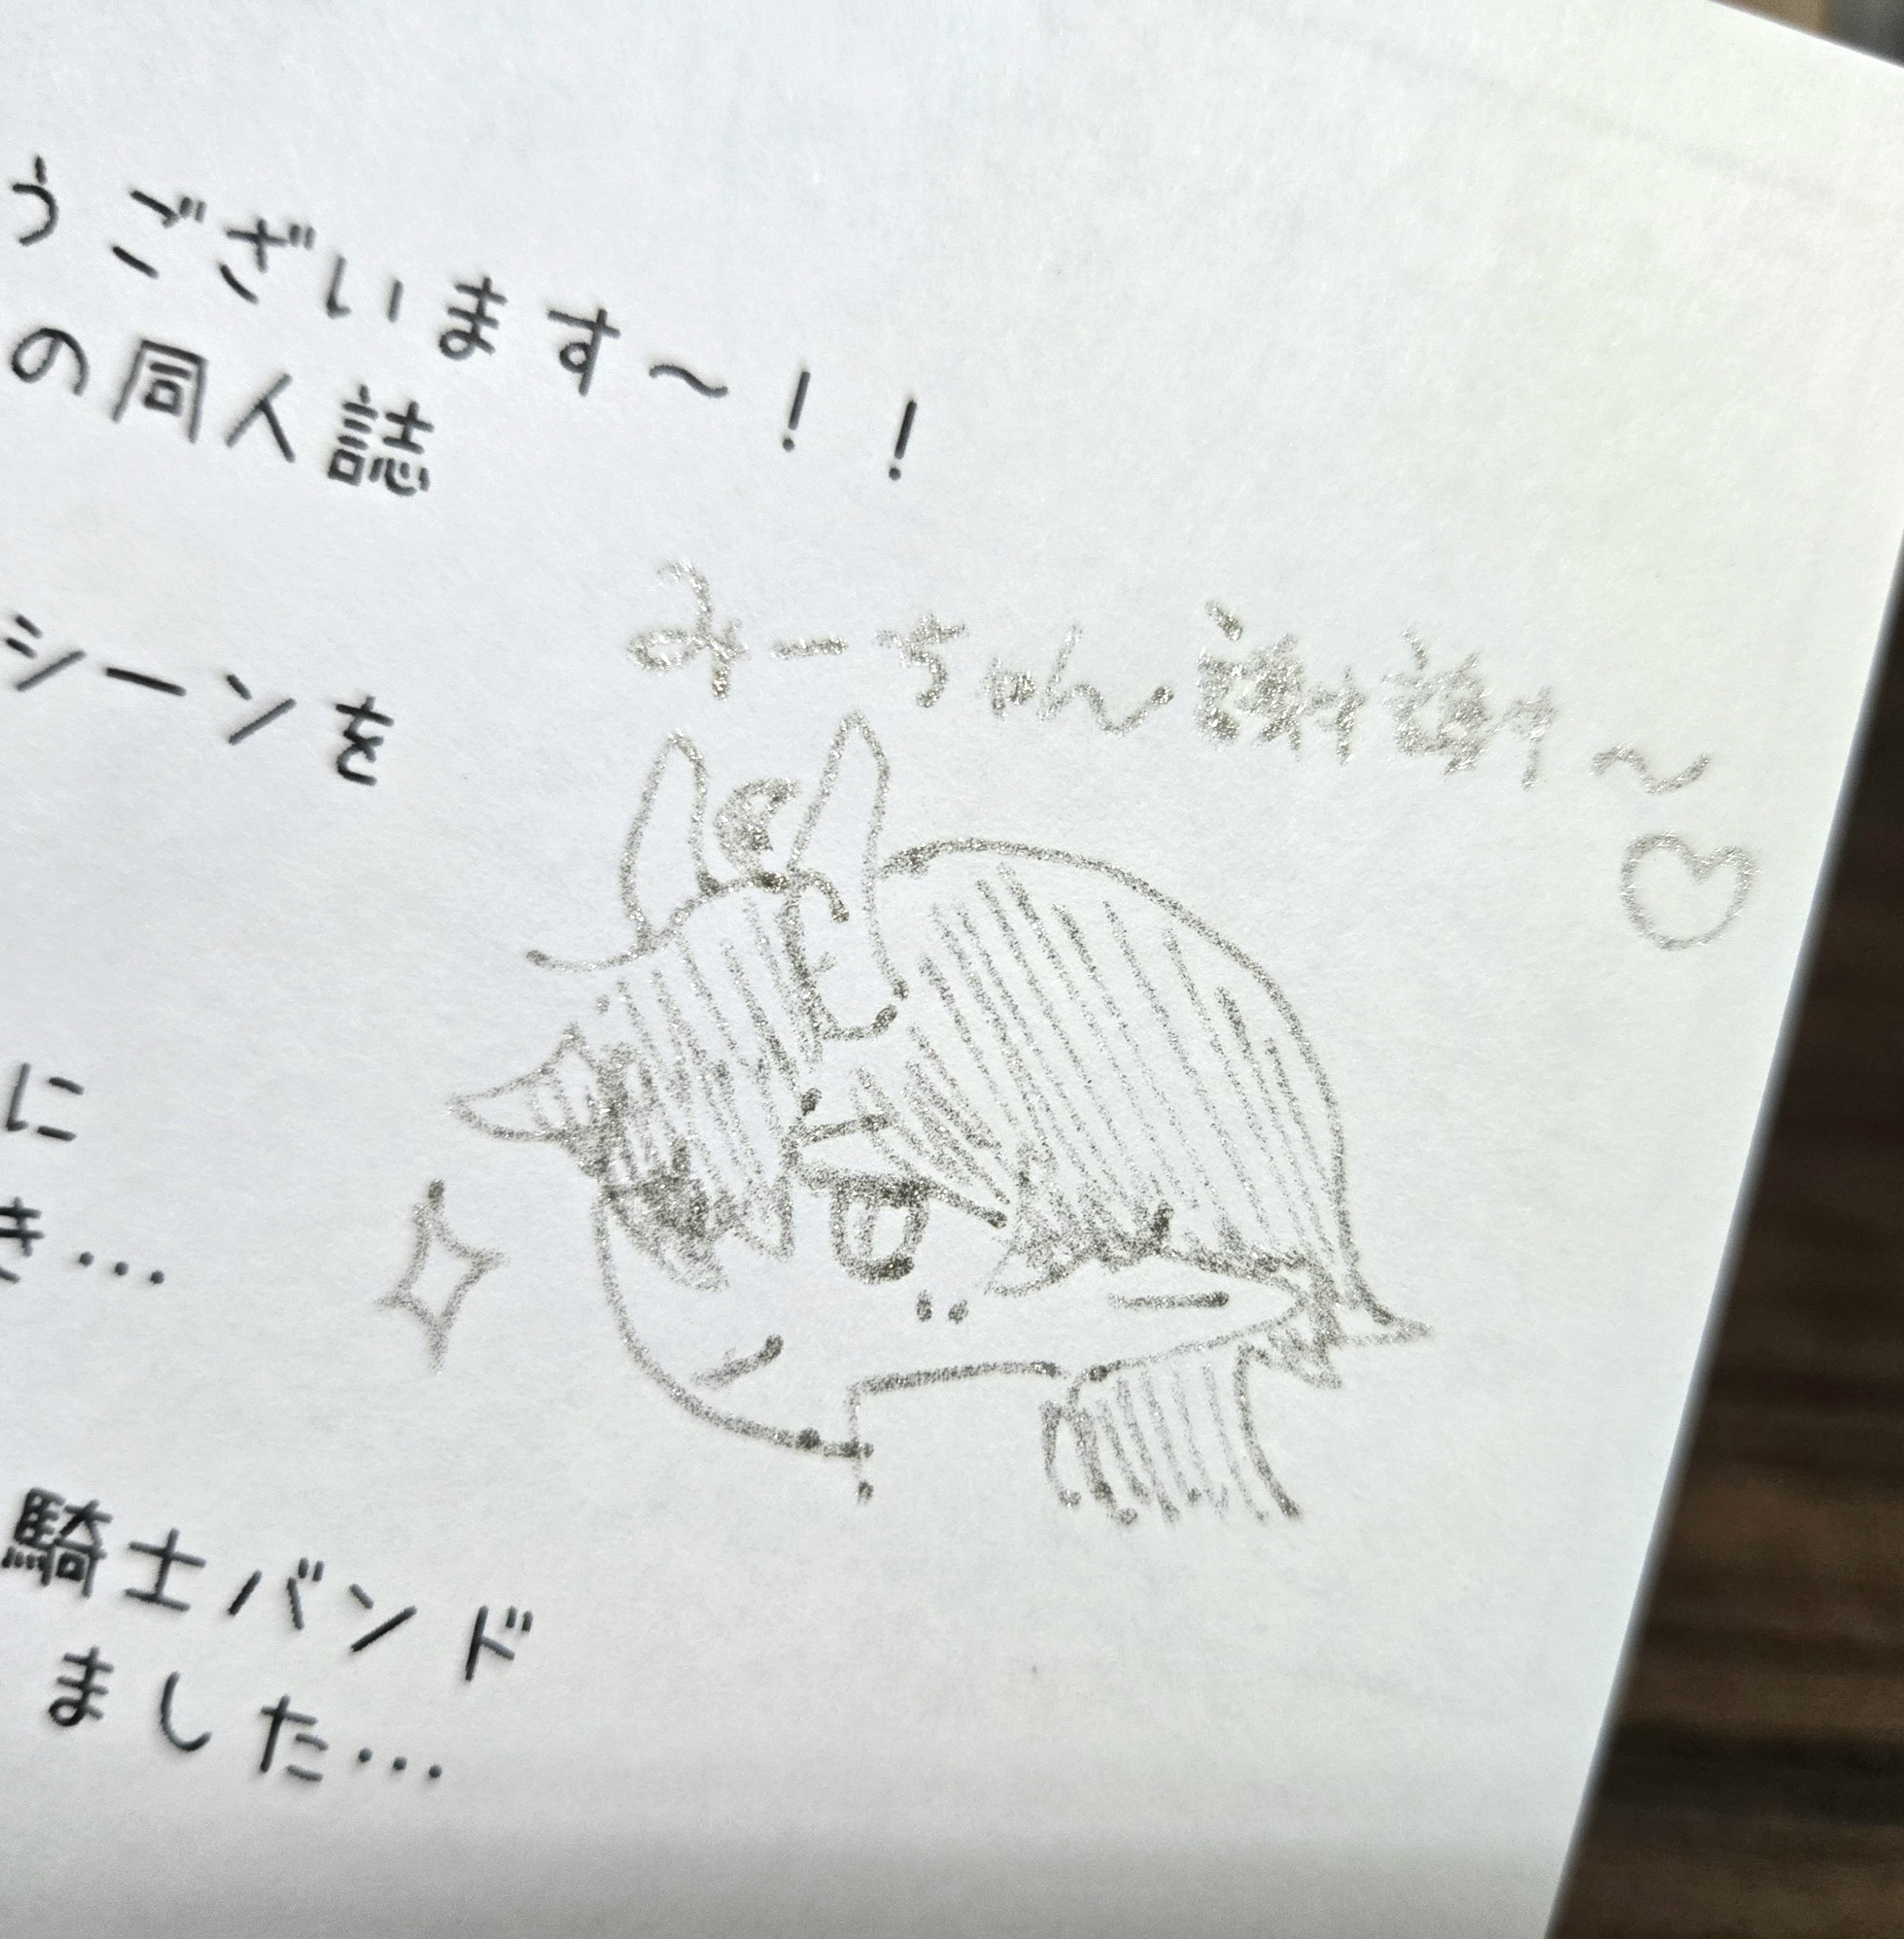 うございます～！！
の同人誌
みーちゃん謝謝～♡
シーンを
に
き…
騎士バンド
ました…